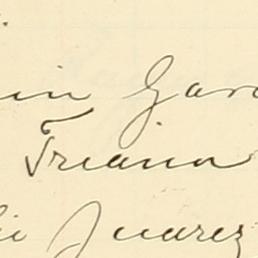 in Gar
Triana
lie Juarez